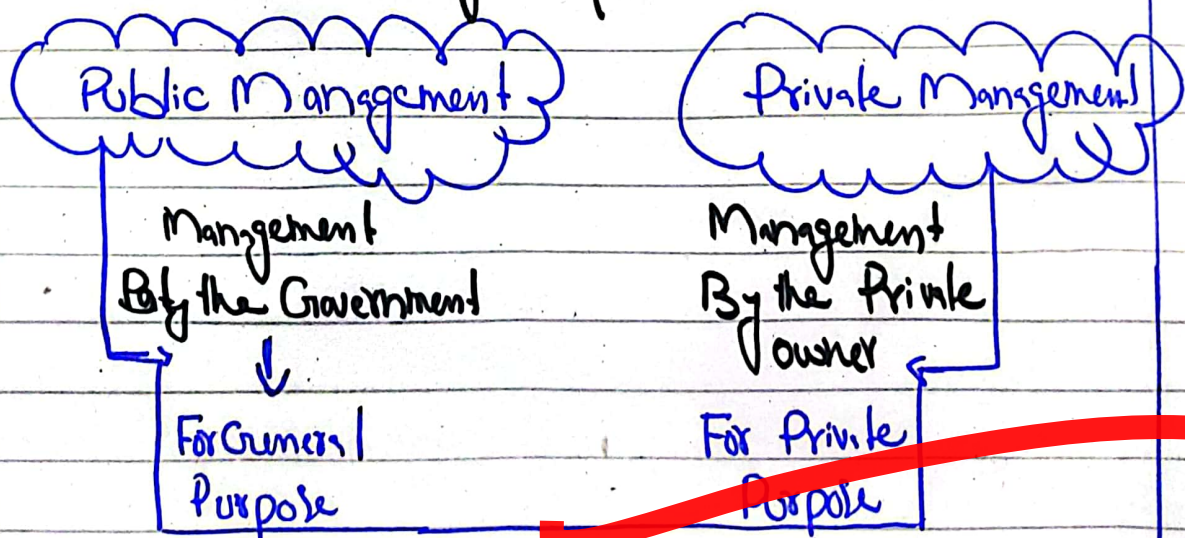 Public Management
Management
By the Government
For General
Purpose
Private Management
Management
By the Private
owner
For Private
Purpose